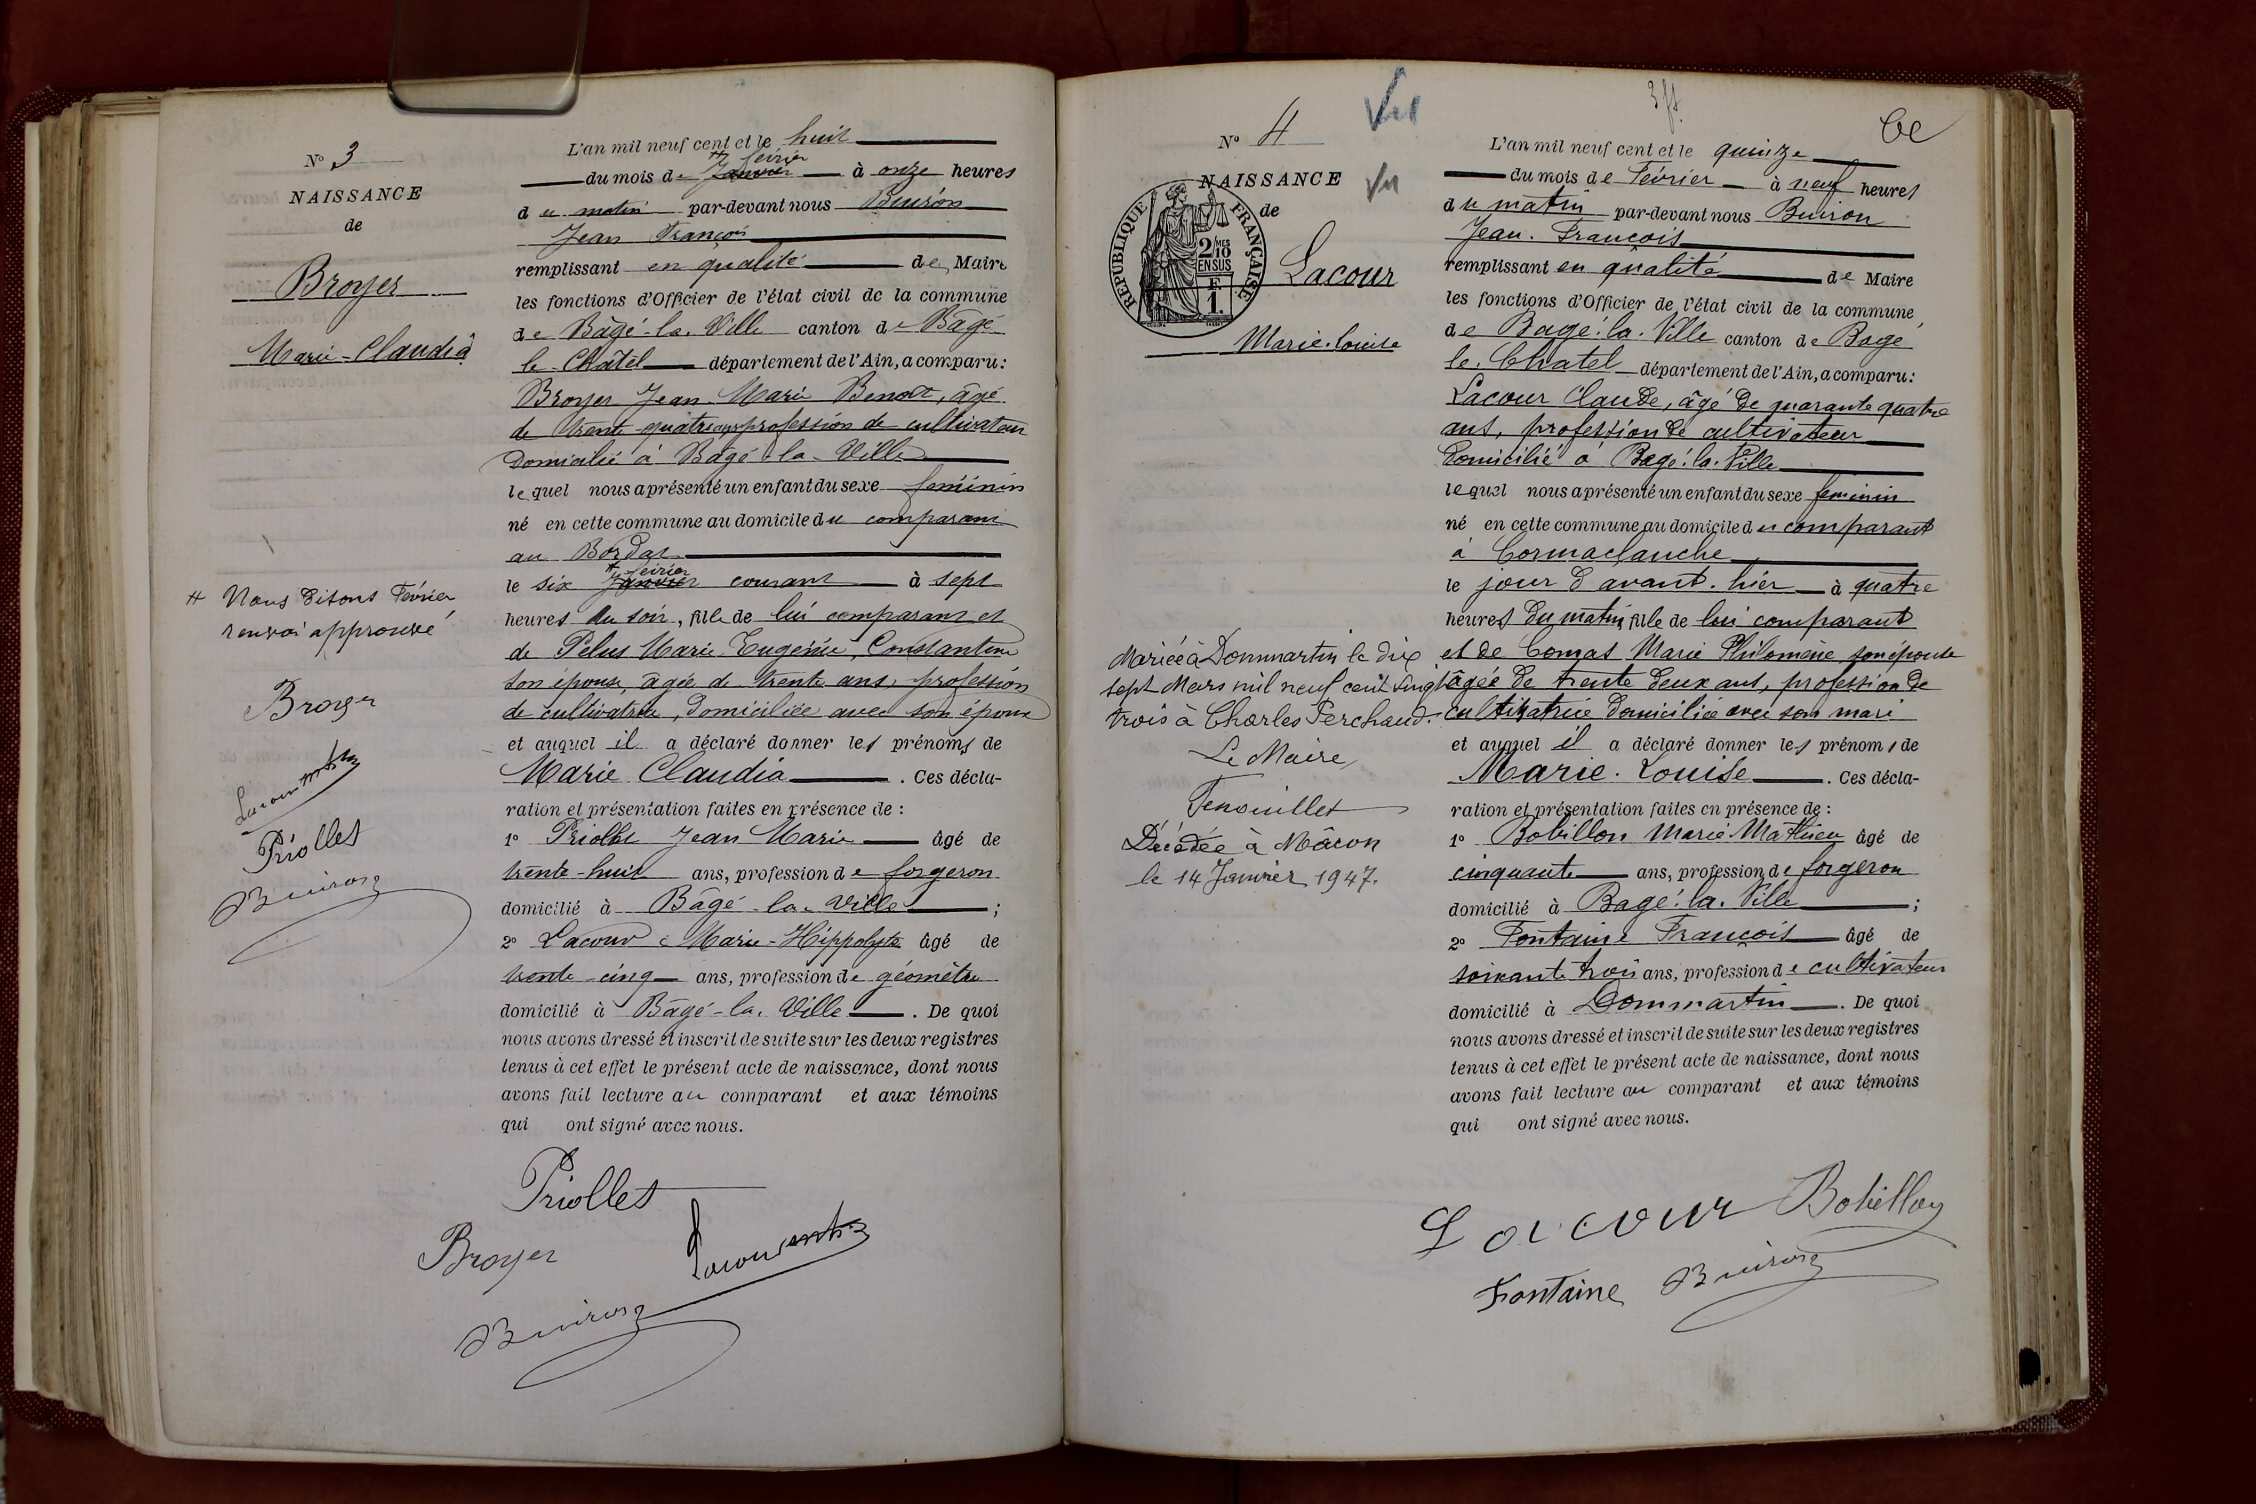 N° 3
NAISSANCE
de
Broyer
Marie-Claudia
# Nous disons Février
renvoi approuvé
Broyer
Priollet
Buiron
L'an mil neuf cent et le huit
du mois de Janvier # février à onze heures
du matin par-devant nous Buiron
Jean François
remplissant en qualité de Maire
les fonctions d'Officier de l'état civil de la commune
de Bâgé-la-Ville canton de Bâgé
le Châtel département de l'Ain, a comparu:
Broyer Jean Marie Benoît, âgé
de trente-quatre ans profession de cultivateur
domicilié à Bâgé-la-Ville
lequel nous a présenté un enfant du sexe féminin
né en cette commune au domicile du comparant
au Bordat
le six Janvier # février courant à sept
heures du soir, fille de lui comparant et
de Pelus Marie Eugénie, Constantine
son épouse, âgée de trente ans, profession
de cultivatrice, domiciliée avec son époux
et auquel il a déclaré donner les prénoms de
Marie Claudia. Ces décla-
ration et présentation faites en présence de :
1° Priollet Jean Marie âgé de
trente-huit ans, profession de forgeron
domicilié à Bâgé-la-Ville ;
2° Lacour Marie-Hippolyte âgé de
trente-cinq ans, profession de géomètre
domicilié à Bâgé-la-Ville. De quoi
nous avons dressé et inscrit de suite sur les deux registres
tenus à cet effet le présent acte de naissance, dont nous
avons fait lecture au comparant et aux témoins
qui ont signé avec nous.
Priollet
Broyer
Buiron
N° 4
Vu
Vu
NAISSANCE
de
RÉPUBLIQUE FRANÇAISE
2/10 MES
EN SUS
F
1.
Lacour
Marie-Louise
Mariée à Dommartin le dix
sept Mars mil neuf cent vingt
trois à Charles Perchaud.
Le Maire,
Fenouillet
Décédée à Mâcon
le 14 Janvier 1947.
L'an mil neuf cent et le quinze
du mois de Février à neuf heures
du matin par-devant nous Buiron
Jean. François
remplissant en qualité de Maire
les fonctions d'Officier de l'état civil de la commune
de Bagé-la-Ville canton de Bagé
le. Chatel département de l'Ain, a comparu:
Lacour Claude, âgé de quarante quatre
ans, profession de cultivateur
domicilié à Bagé-la-Ville
lequel nous a présenté un enfant du sexe féminin
né en cette commune au domicile du comparant
à Cormaclanche
le jour d'avant-hier à quatre
heures du matin, fille de lui comparant
et de Comas Marie Philomène son épouse
âgée de trente deux ans, profession de
cultivatrice domiciliée avec son mari
et auquel il a déclaré donner les prénoms de
Marie. Louise. Ces décla-
ration et présentation faites en présence de :
1° Bobillon Marie Mathieu âgé de
cinquante ans, profession de forgeron
domicilié à Bagé-la-Ville ;
2° Fontaine François âgé de
soixante trois ans, profession de cultivateur
domicilié à Dommartin. De quoi
nous avons dressé et inscrit de suite sur les deux registres
tenus à cet effet le présent acte de naissance, dont nous
avons fait lecture au comparant et aux témoins
qui ont signé avec nous.
Lacour Bobillon
Fontaine Buiron